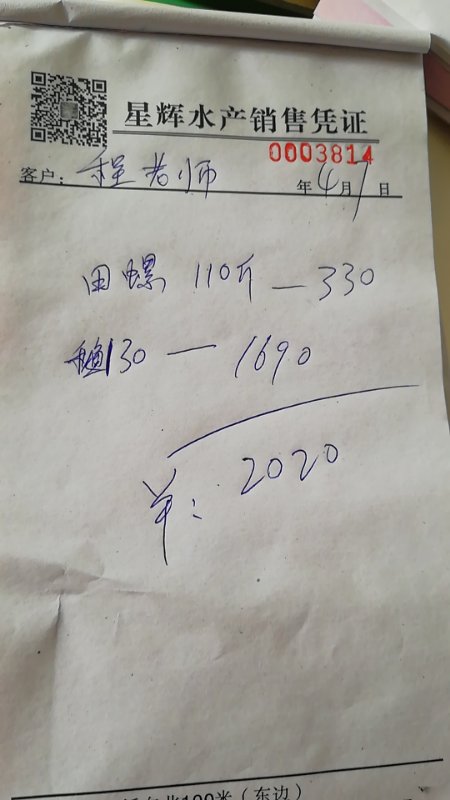 星辉水产销售凭证
0003814
客户: 程老师 年4月1日
田螺 110斤 — 330
130 — 1690
¥: 2020
100米(东边)